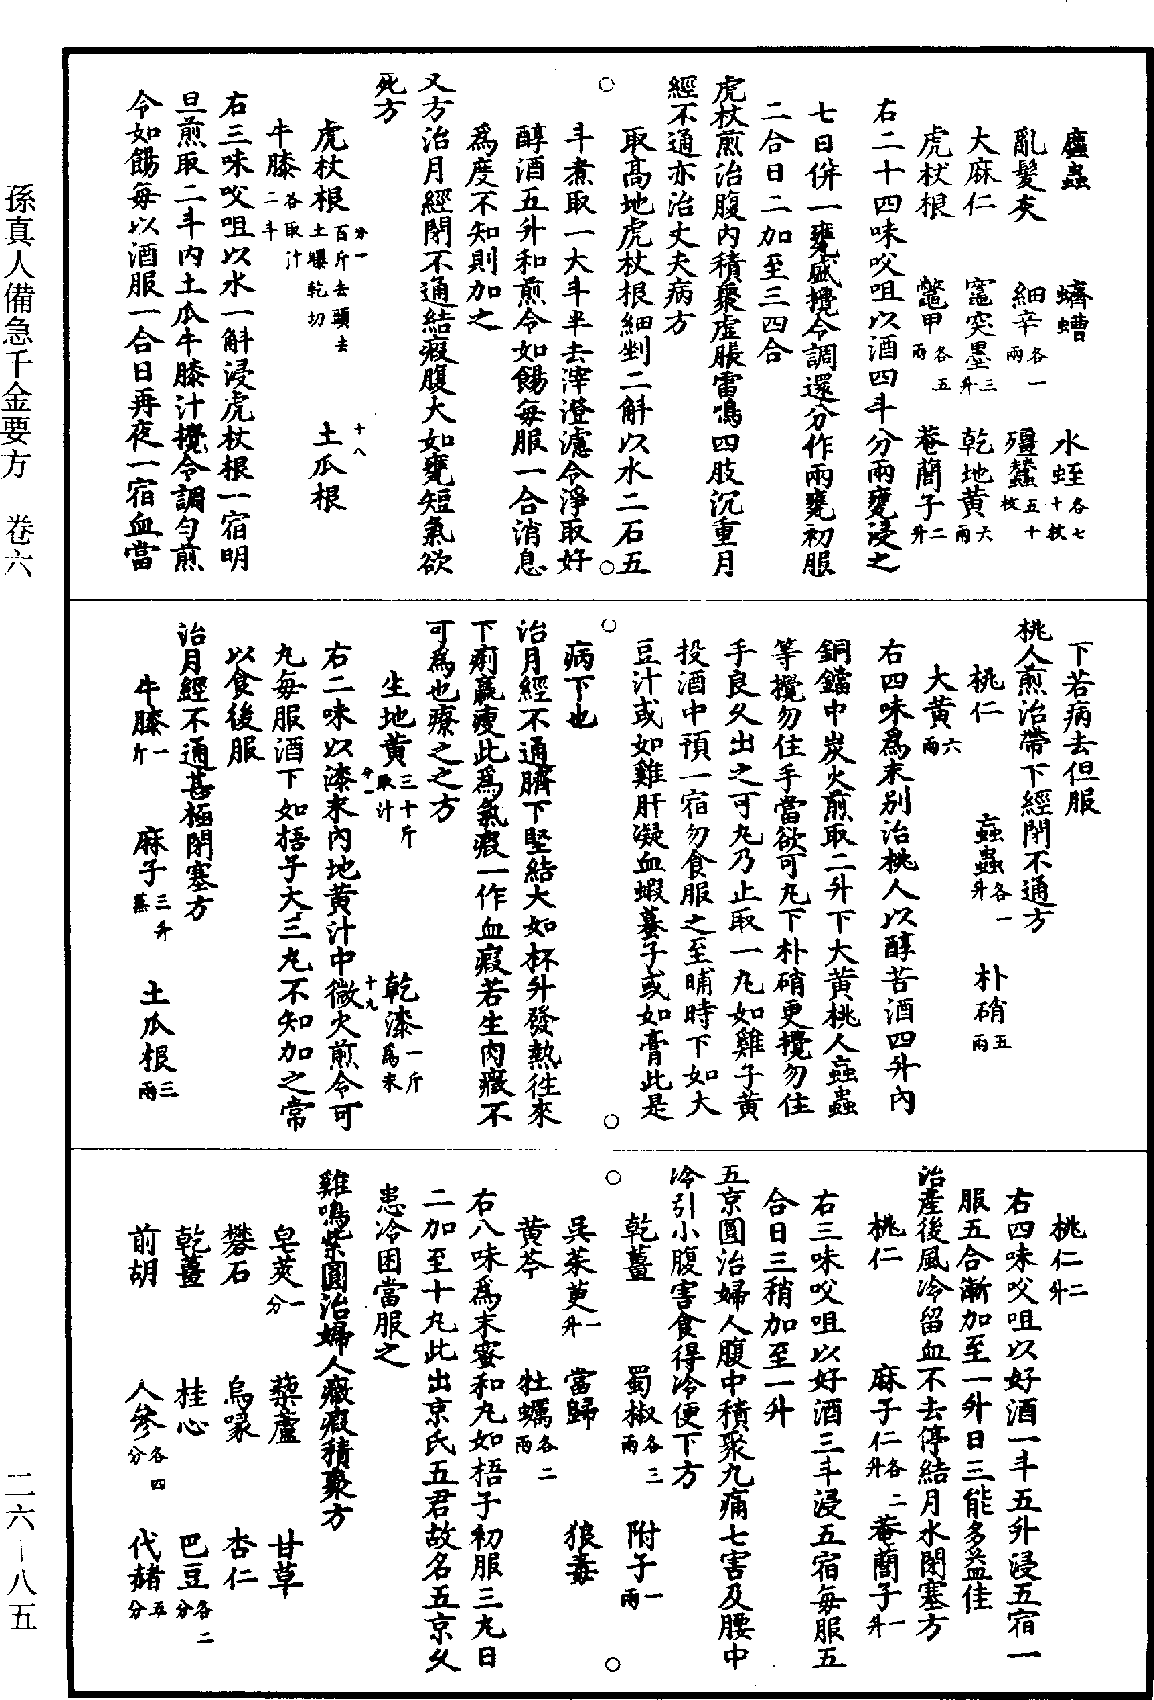 䗪蟲 蠐螬 水蛭各七十枚
亂髮灰 細辛各一兩 殭蠶五十枚
大麻仁 竈突墨三升 乾地黃六兩
虎杖根 鼈甲各五兩 菴䕡子二升
右二十四味㕮咀以酒四斗分兩甕浸之
七日併一甕盛攪令調還分作兩甕初服
二合日二加至三四合
虎杖煎治腹內積聚虛脹雷鳴四肢沉重月
經不通亦治丈夫病方
取高地虎杖根細剉二斛以水二石五
○ ○
斗煮取一大斗半去滓澄濾令淨取好
醇酒五升和煎令如餳每服一合消息
爲度不知則加之
又方治月經閉不通結瘕腹大如甕短氣欲
死方
虎杖根百斤去頭去土曝乾切 土瓜根
分一 十八
牛膝各取汁二斗
右三味㕮咀以水一斛浸虎杖根一宿明
旦煎取二斗內土瓜牛膝汁攪令調勻煎
令如餳每以酒服一合日再夜一宿血當
下若病去但服
桃人煎治帶下經閉不通方
桃仁 䖟蟲各一升 朴硝五兩
大黃六兩
右四味爲末別治桃人以醇苦酒四升內
銅鐺中炭火煎取二升下大黃桃人䖟蟲
等攪勿住手當欲可丸下朴硝更攪勿住
手良久出之可丸乃止取一丸如雞子黃
投酒中預一宿勿食服之至晡時下如大
豆汁或如雞肝凝血蝦蟇子或如膏此是
○ ○
病下也
治月經不通臍下堅結大如杯升發熱往來
下痢羸瘦此爲氣瘕一作血瘕若生肉癥不
可爲也療之之方
生地黃三十斤取汁 乾漆一斤爲末
分一 十九
右二味以漆末內地黃汁中微火煎令可
丸每服酒下如梧子大三丸不知加之常
以食後服
治月經不通甚極閉塞方
牛膝一斤 麻子三升蒸 土瓜根三兩
桃仁二升
右四味㕮咀以好酒一斗五升浸五宿一
服五合漸加至一升日三能多益佳
治產後風冷留血不去停結月水閉塞方
桃仁 麻子仁各二升 菴䕡子一升
右三味㕮咀以好酒三斗浸五宿每服五
合日三稍加至一升
五京圓治婦人腹中積聚九痛七害及腰中
冷引小腹害食得冷便下方
乾薑 蜀椒各三兩 附子一兩
○ ○
吳茱萸一升 當歸 狼毒
黃芩 牡蠣各二兩
右八味爲末蜜和丸如梧子初服三丸日
二加至十丸此出京氏五君故名五京久
患冷困當服之
雞鳴紫圓治婦人癥瘕積聚方
皂莢一分 藜蘆 甘草
礬石 烏喙 杏仁
乾薑 桂心 巴豆各二分
前胡 人參各四分 代赭五分
孫真人備急千金要方 卷六
二六－八五